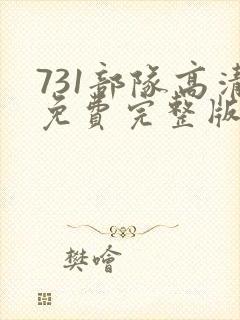 731部隊高清
免費完整版
樊噲